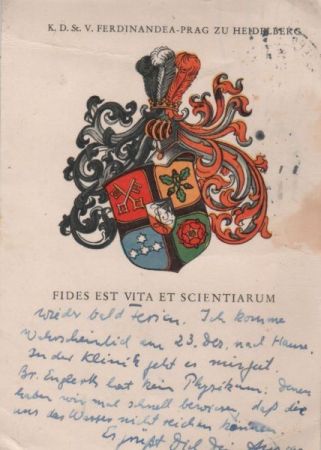 K. D. St. V. FERDINANDEA-PRAG ZU HEIDELBERG
FIDES EST VITA ET SCIENTIARUM
wieder bald Ferien. Ich komme
wahrscheinlich am 23. Dez. nach Hause.
In der Klinik geht es
Br. Englerth hat kein Physikum. Denen
haben wir mal schnell bewiesen, daß die
uns das Wasser nicht reichen können
Es grüßt Dich Dein